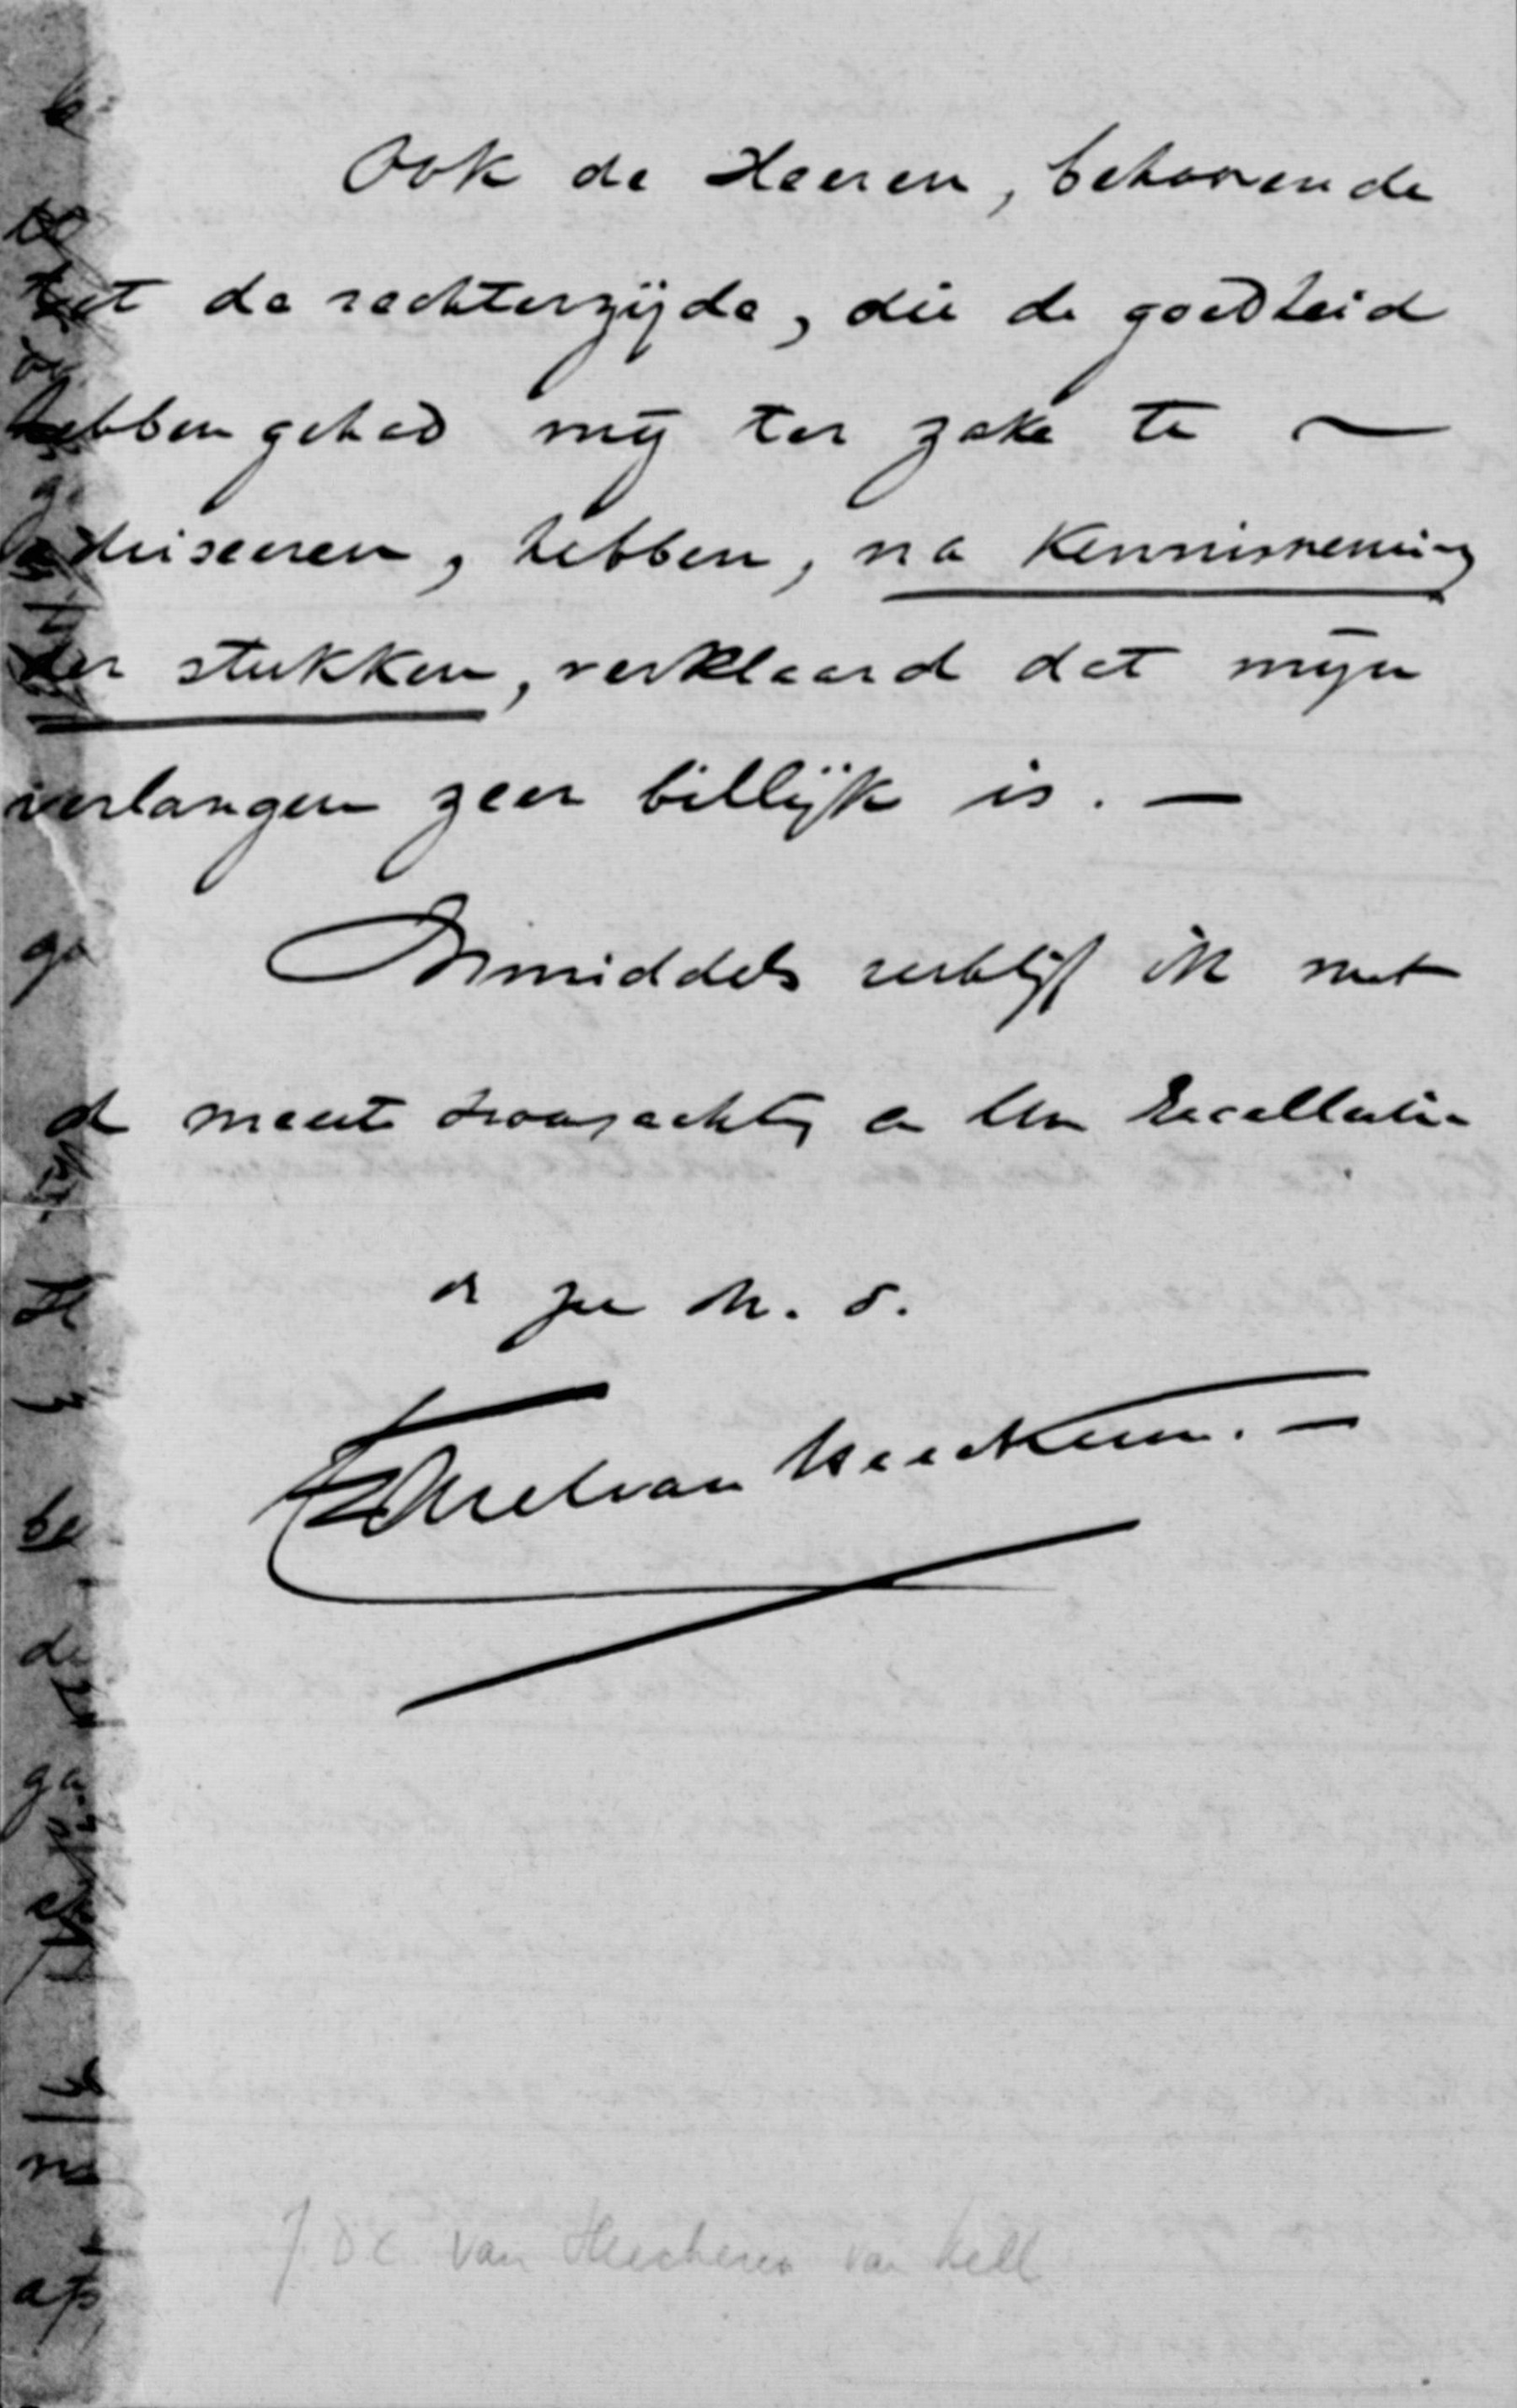 Ook de Heeren, behoorende
tot de rechterzijde, die de goedheid
hebben gehad mij ter zake te —
adviseeren, hebben, na kennisneming
der stukken, verklaard dat mijn
verlangen zeer billijk is. —
Inmiddels verblijf ik met
de meeste hoogachting Uw Excellentie
van Heeckeren. —
J. D. C. van Heeckeren van Kell